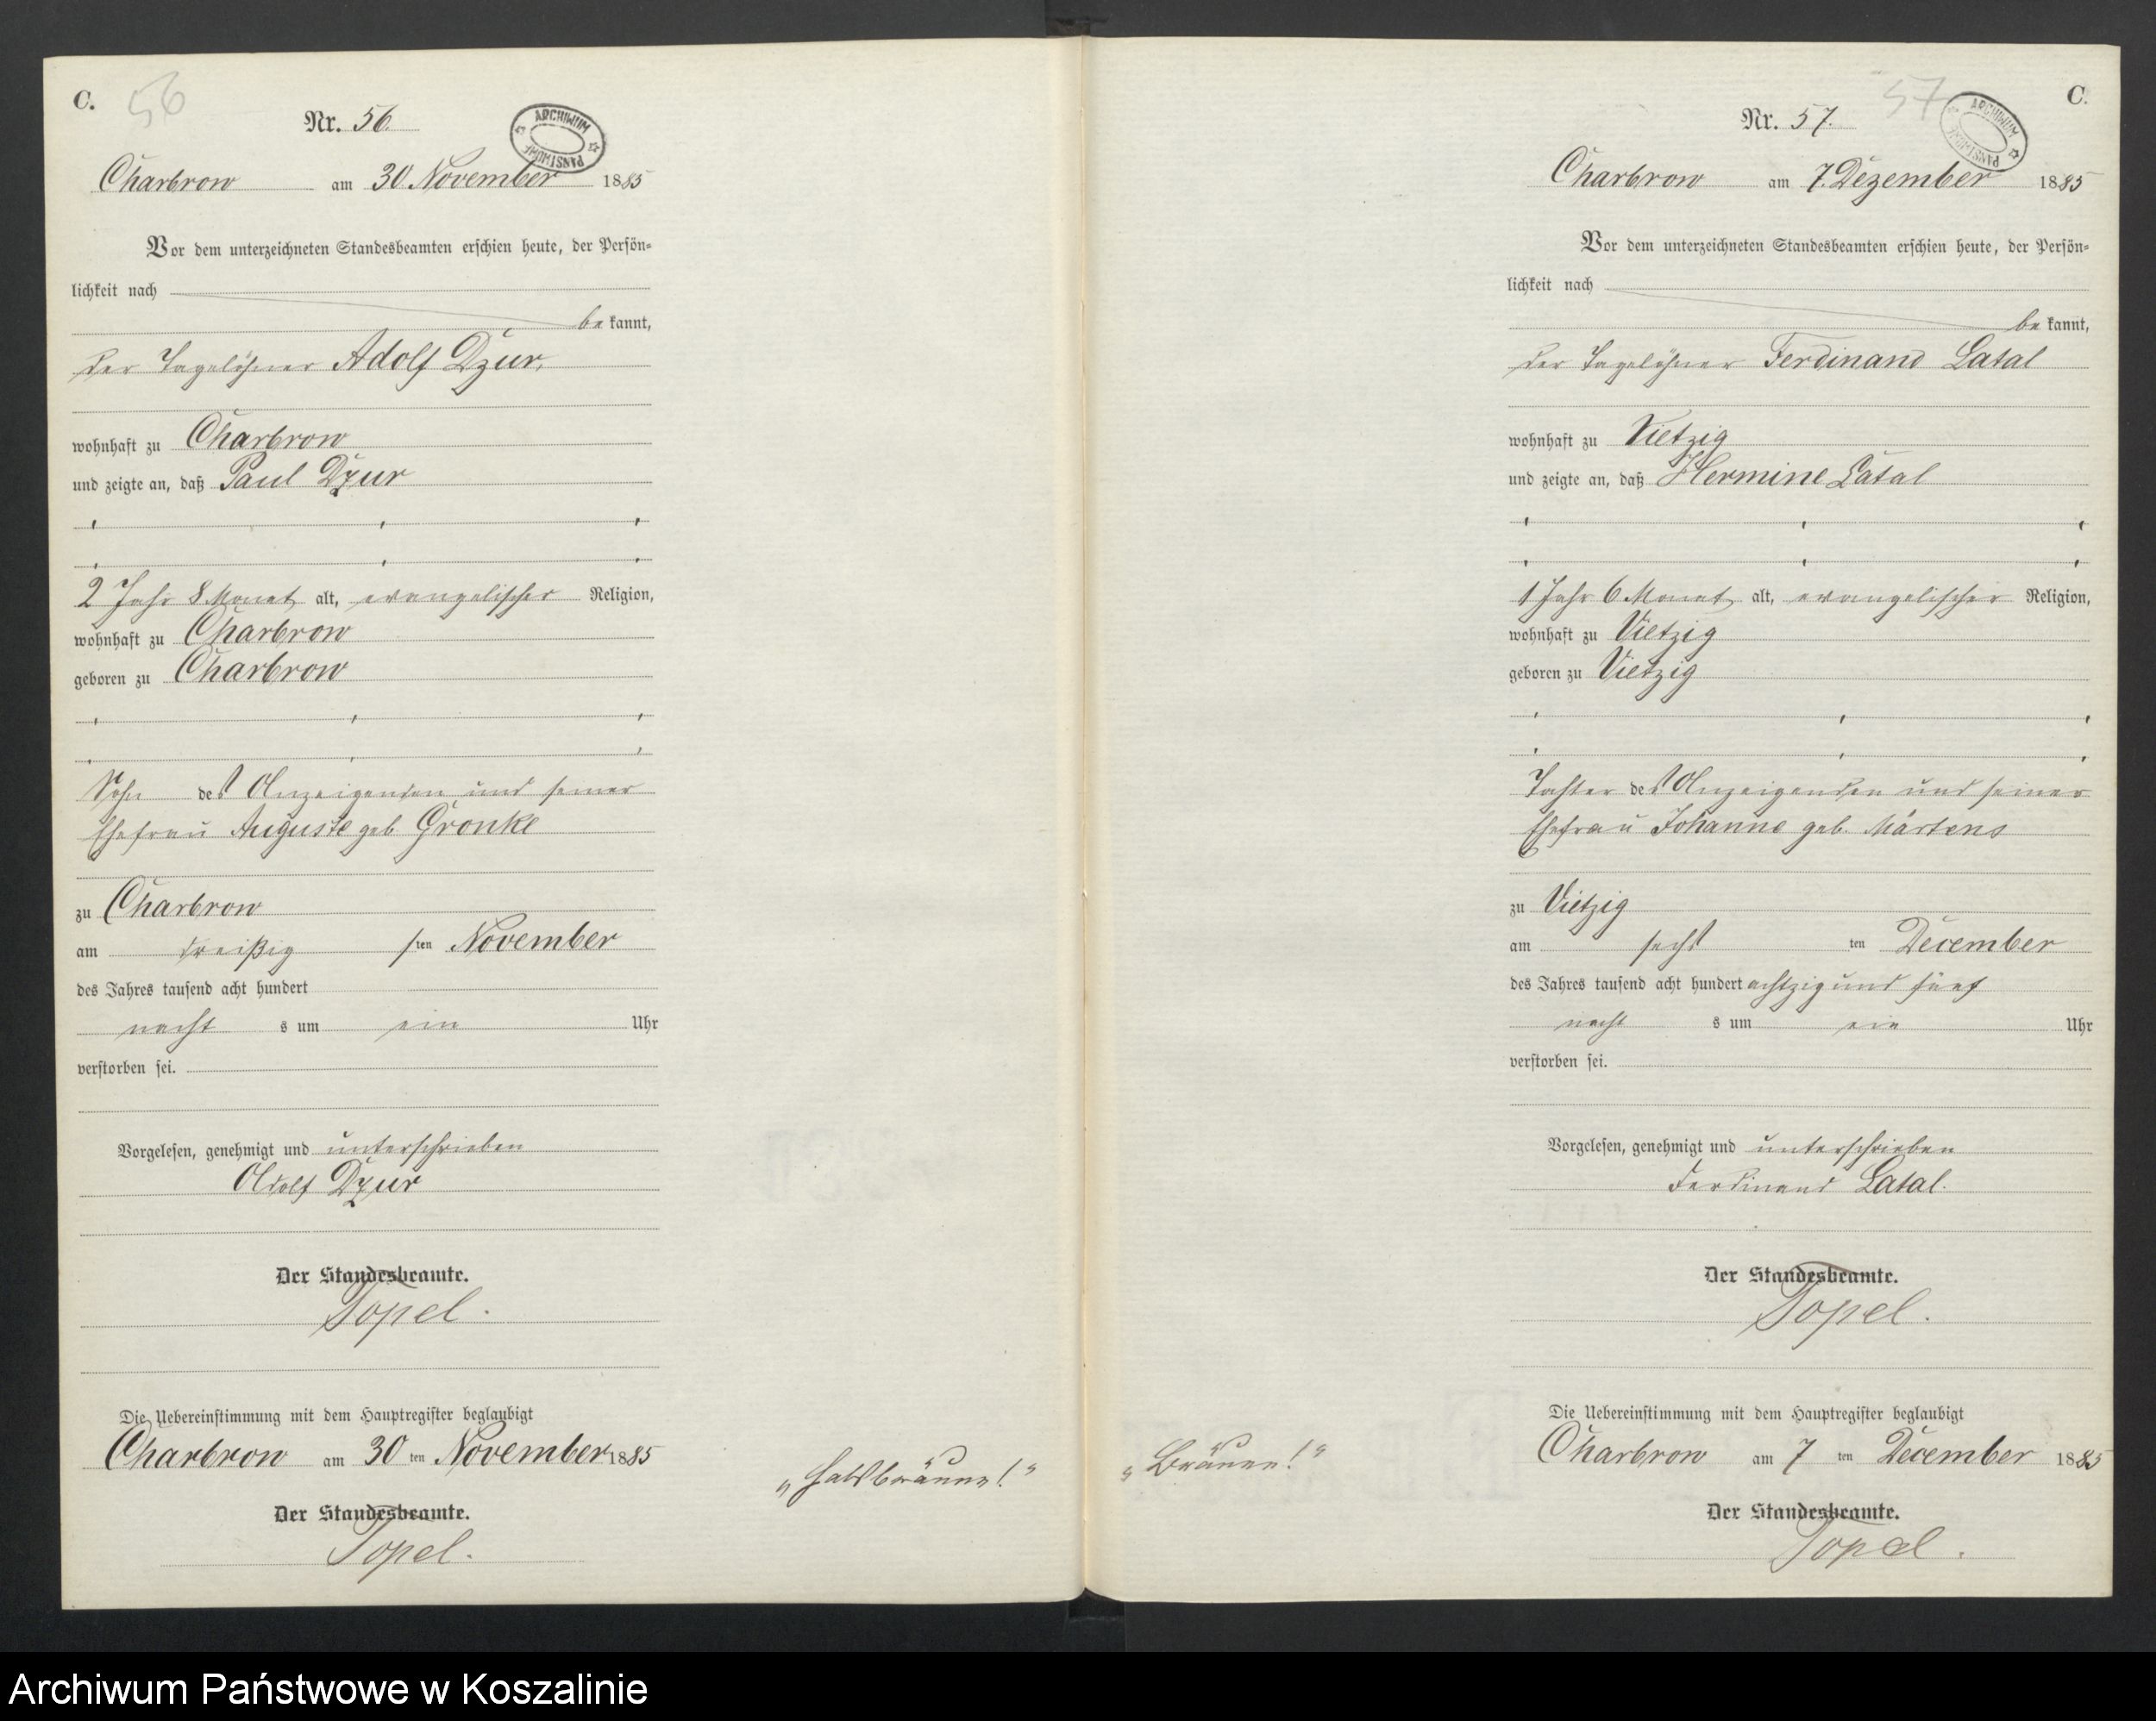 C.
56
Nr. 56.
ARCHIWUM PAŃSTWOWE
Charbrow am 30 November 1885
Vor dem unterzeichneten Standesbeamten erschien heute, der Persön-
lichkeit nach
be kannt,
der Tagelöhner Adolf Dzur,
wohnhaft zu Charbrow
und zeigte an, daß Paul Dzur
2 Jahr 8 Monat alt, evangelischer Religion,
wohnhaft zu Charbrow
geboren zu Charbrow
Sohn des Anzeigenden und seiner
Ehefrau Auguste geb. Gronke
zu Charbrow
am dreißig sten November
des Jahres tausend acht hundert
nacht s um ein Uhr
verstorben sei.
Vorgelesen, genehmigt und unterschrieben
Adolf Dzur
Der Standesbeamte.
Topel.
Die Uebereinstimmung mit dem Hauptregister beglaubigt
Charbrow am 30 ten November 1885
Der Standesbeamte.
Topel.
„Halsbräune!“
C.
57
Nr. 57.
ARCHIWUM PAŃSTWOWE
Charbrow am 7. Dezember 1885
Vor dem unterzeichneten Standesbeamten erschien heute, der Persön-
lichkeit nach
be kannt,
der Tagelöhner Ferdinand Latal
wohnhaft zu Vietzig
und zeigte an, daß Hermine Latal
1 Jahr 6 Monat alt, evangelischer Religion,
wohnhaft zu Vietzig
geboren zu Vietzig
Tochter des Anzeigenden und seiner
Ehefrau Johanne geb. Märtens
zu Vietzig
am sechs ten December
des Jahres tausend acht hundert achtzig und fünf
nacht s um ein Uhr
verstorben sei.
Vorgelesen, genehmigt und unterschrieben
Ferdinand Latal.
Der Standesbeamte.
Topel.
Die Uebereinstimmung mit dem Hauptregister beglaubigt
Charbrow am 7 ten December 1885
Der Standesbeamte.
Topel.
„Bräune!“
Archiwum Państwowe w Koszalinie